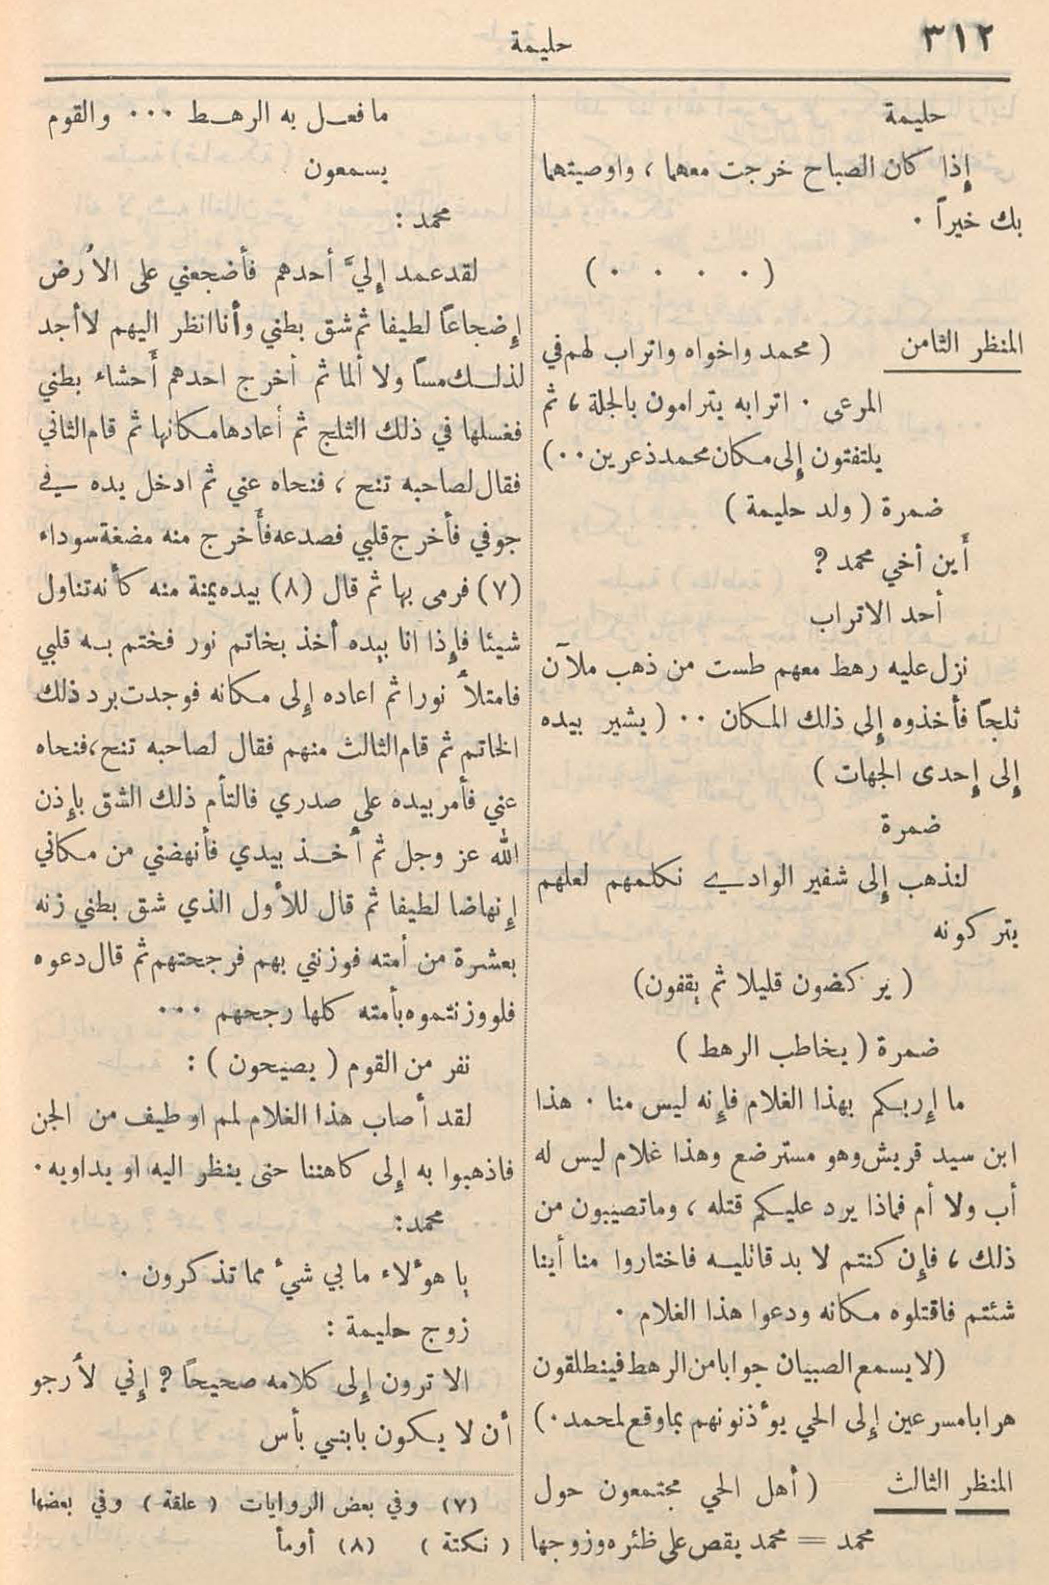 ٣١٢
حليمة
حليمة
إذا كان الصباح خرجت معهما ، واوصيتهما
بك خيراً .
( . . . . )
المنظر الثامن ( محمد واخواه واتراب لهم في
المرعى . اترابه يترامون بالجلة ، ثم
يلتفتون إلى مكان محمد ذعرين . . )
ضمرة ( ولد حليمة )
أين أخي محمد ?
أحد الاتراب
نزل عليه رهط معهم طست من ذهب ملآن
ثلجاً فأخذوه إلى ذلك المكان . . ( يشير بيده
إلى إحدى الجهات )
ضمرة
لنذهب إلى شفير الوادي نكلمهم لعلهم
يتركونه
( يركضون قليلا ثم يقفون )
ضمرة ( يخاطب الرهط )
ما إربكم بهذا الغلام فإنه ليس منا . هذا
ابن سيد قريش وهو مسترضع وهذا غلام ليس له
أب ولا أم فماذا يرد عليكم قتله ، وما تصيبون من
ذلك ، فإن كنتم لا بد قاتليه فاختاروا منا أينا
شئتم فاقتلوه مكانه ودعوا هذا الغلام .
( لا يسمع الصبيان جوابا من الرهط فينطلقون
هرابا مسرعين إلى الحي يؤذنونهم بما وقع لمحمد . )
المنظر الثالث ( أهل الحي مجتمعون حول
محمد = محمد يقص على ظئره وزوجها
ما فعل به الرهط ... والقوم
يسمعون
محمد :
لقد عمد إليَّ أحدهم فأضجعني على الأرض
إضجاعاً لطيفا ثم شق بطني وأنا انظر اليهم لا أجد
لذلك مساً ولا ألما ثم أخرج احدهم أحشاء بطني
فغسلها في ذلك الثلج ثم أعادها مكانها ثم قام الثاني
فقال لصاحبه تنح ، فنحاه عني ثم ادخل يده في
جوفي فأخرج قلبي فصدعه فأخرج منه مضغة سوداء
(٧) فرمى بها ثم قال (٨) بيده يمنة منه كأنه تناول
شيئا فإذا انا بيده أخذ بخاتم نور فختم به قلبي
فامتلأ نورا ثم اعاده إلى مكانه فوجدت برد ذلك
الخاتم ثم قام الثالث منهم فقال لصاحبه تنح ، فنحاه
عني فأمر بيده على صدري فالتأم ذلك الشق بإذن
الله عز وجل ثم أخذ بيدي فأنهضني من مكاني
إنهاضا لطيفا ثم قال للأول الذي شق بطني زنه
بعشرة من أمته فوزنني بهم فرجحتهم ثم قال دعوه
فلو وزنتموه بأمته كلها رجحهم ...
نفر من القوم ( يصيحون ) :
لقد أصاب هذا الغلام لمم او طيف من الجن
فاذهبوا به إلى كاهننا حتى ينظر اليه او يداويه .
محمد :
يا هؤلاء ما بي شيء مما تذكرون .
زوج حليمة :
الا ترون إلى كلامه صحيحاً ? إني لأرجو
أن لا يكون بابني بأس
(٧) وفي بعض الروايات ( علقة ) وفي بعضها
( نكتة ) (٨) أومأ